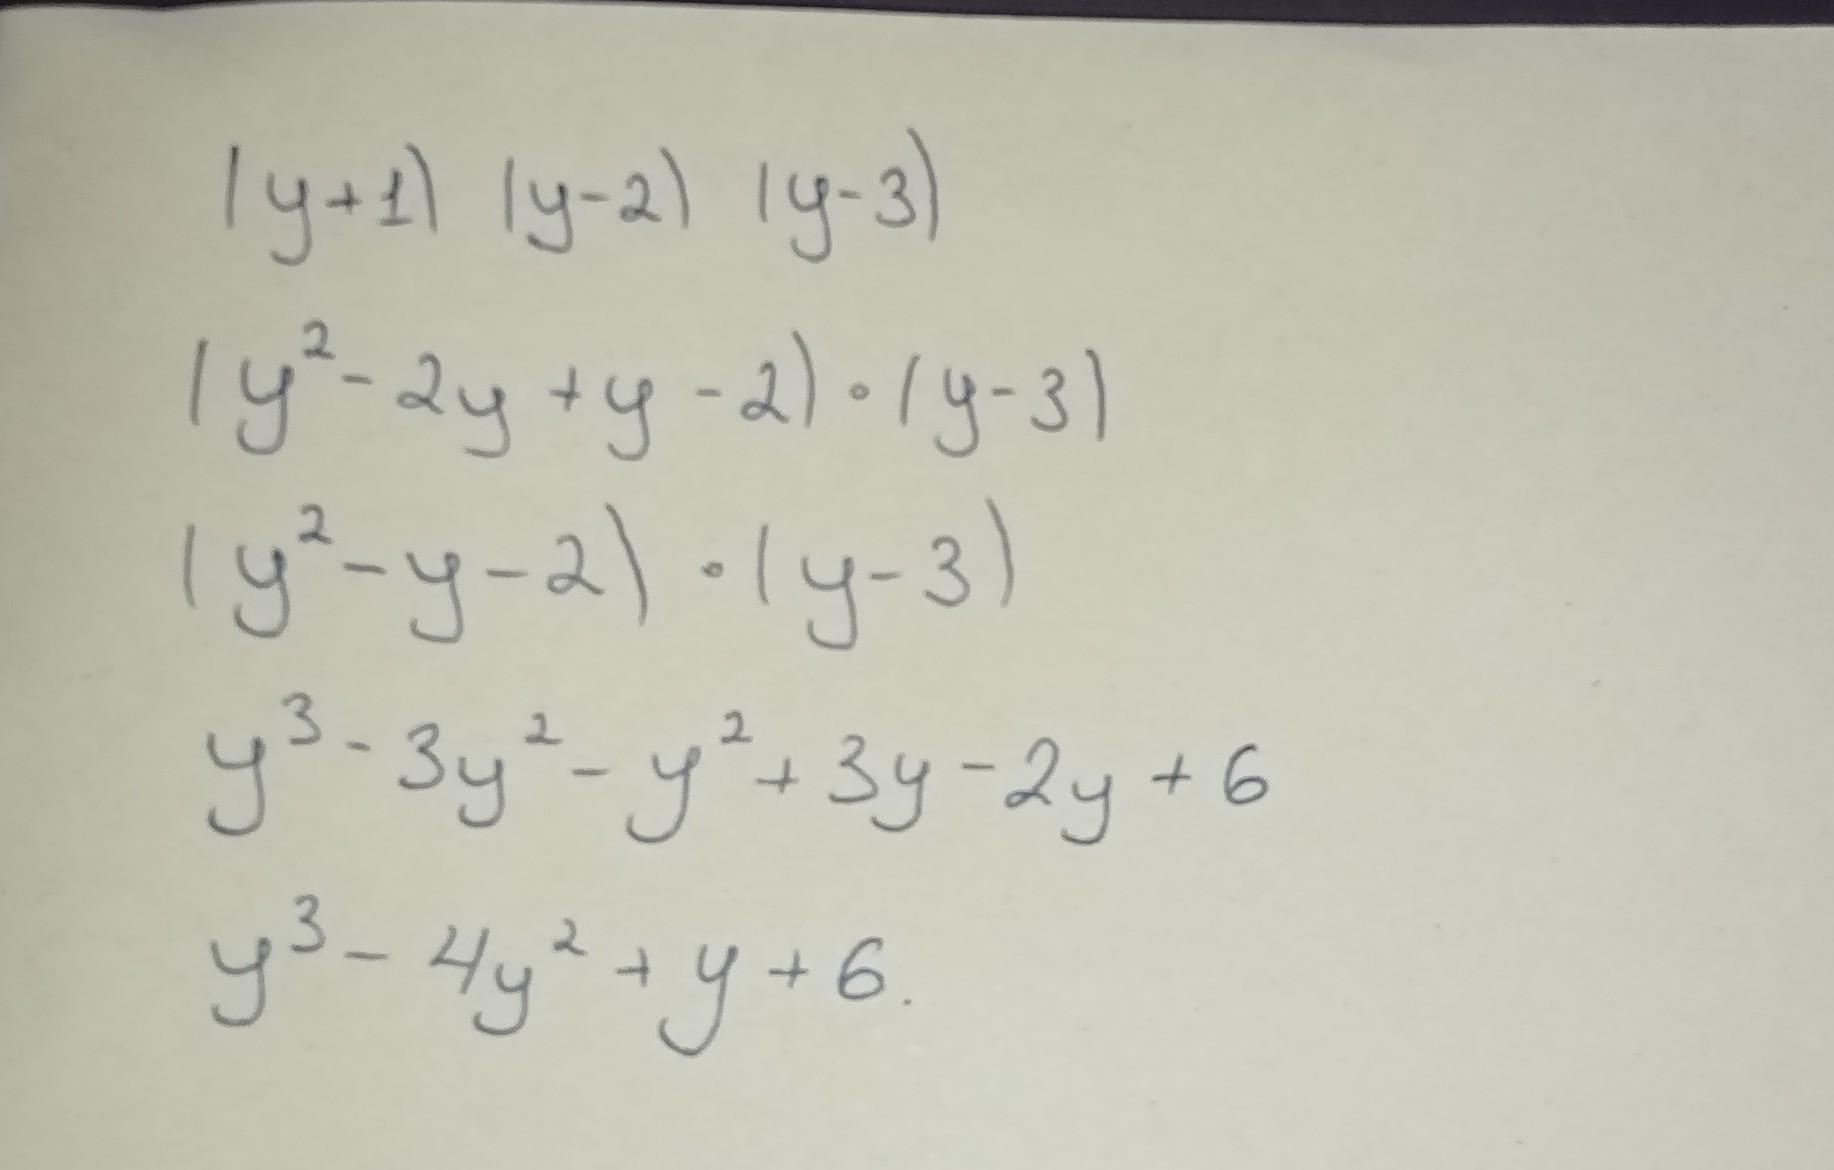 (y+1) (y-2) (y-3)
(y²-2y+y-2)·(y-3)
(y²-y-2)·(y-3)
y³-3y²-y²+3y-2y+6
y³-4y²+y+6.